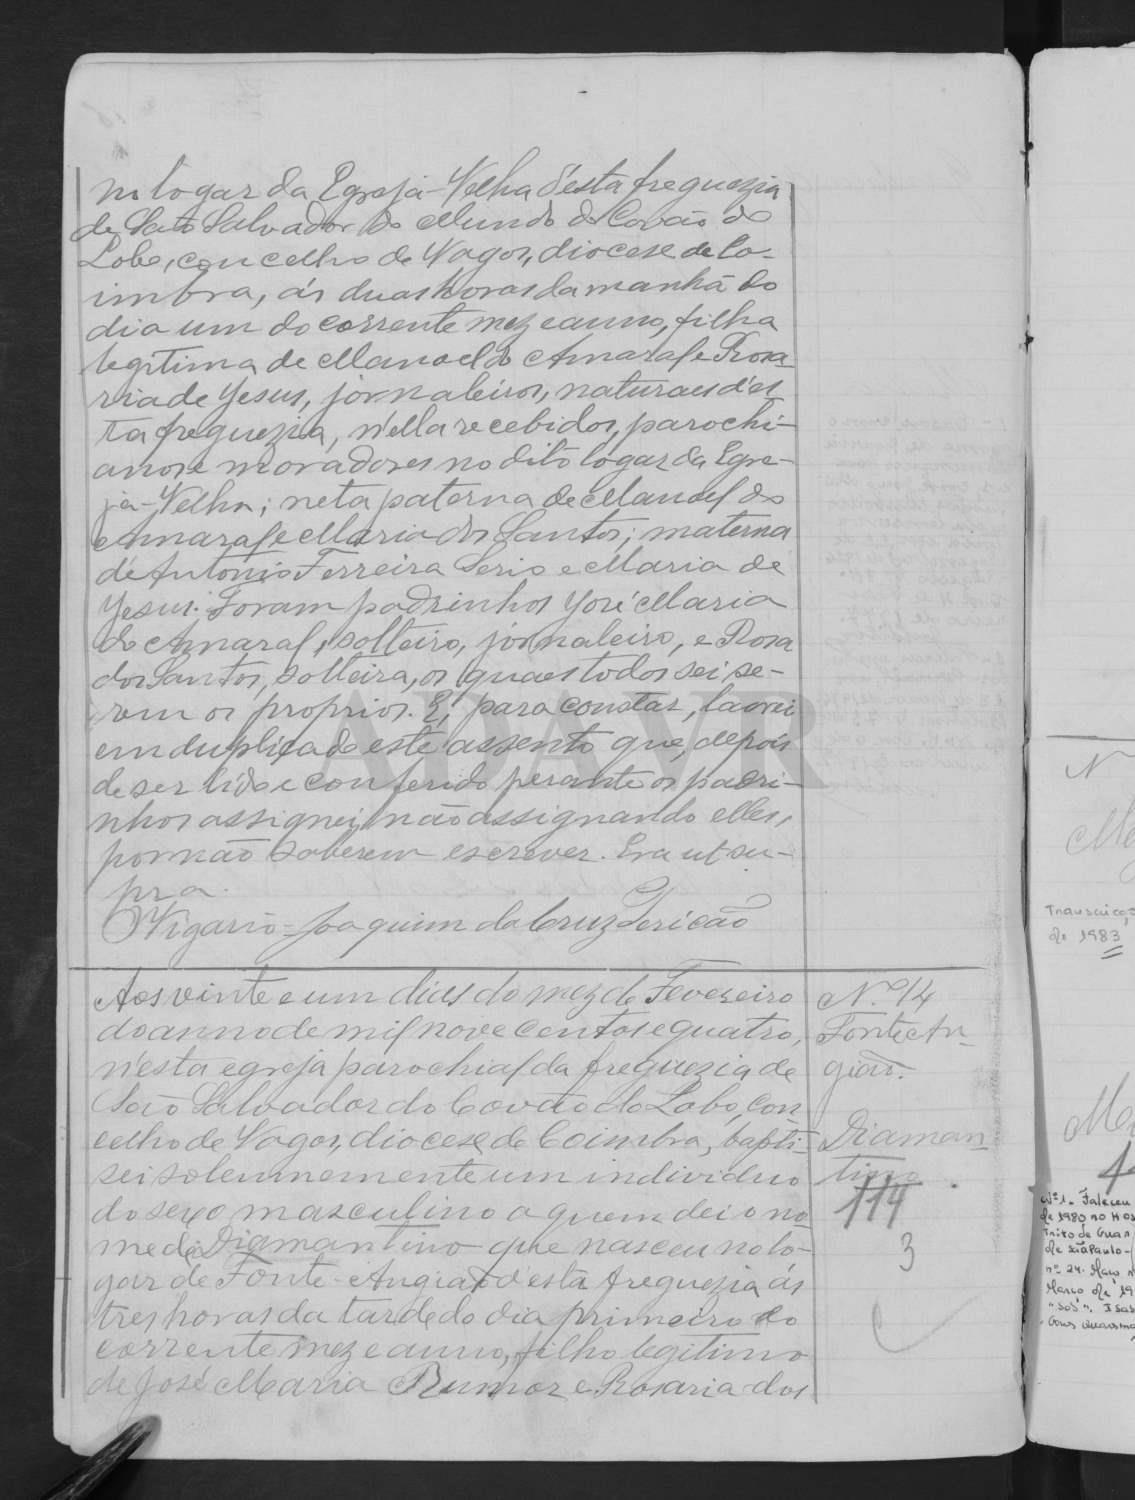 no logar da Egreja-Velha d'esta freguezia
de São Salvador do Mundo do Covão do
Lobo, concelho de Vagos, diocese de Co-
imbra, ás duas horas da manhã do
dia um do corrente mez e anno, filha
legitima de Manoel do Amaral e Rosa-
ria de Jesus, jornaleiros, naturaes d'es-
ta freguezia, n'ella recebidos, parochi-
anos e moradores no dito logar da Egre-
ja-Velha; neta paterna de Manoel do
Amaral e Maria dos Santos; materna
de Antonio Ferreira Serio e Maria de
Jesus. Foram padrinhos José Maria
do Amaral, solteiro, jornaleiro, e Rosa
dos Santos, solteira, os quaes todos sei se-
rem os proprios. E, para constar, lavrei
em duplicado este assento que, depois
de ser lido e conferido perante os padri-
nhos assignei, não assignando elles,
por não saberem escrever. Era ut su-
pra.
O Vigario = Joaquim da Cruz Pericão
Aos vinte e um dias do mez de Fevereiro
do anno de mil nove centos e quatro,
n'esta egreja parochial da freguezia de
São Salvador do Covão do Lobo, con-
celho de Vagos, diocese de Coimbra, bapti-
sei solemnemente um individuo
do sexo masculino a quem dei o no-
me de Diamantino que nasceu no lo-
gar de Fonte-Angião d'esta freguezia ás
tres horas da tarde do dia primeiro do
corrente mez e anno, filho legitimo
de José Maria Rumor e Rosaria dos
N.º 14
Fonte An-
gião.
Diaman-
tino.
114
3
C
ADAVR
N
Transcriçã
de 1983
Nº 1 - Faleceu
de 1980 no Hos
de São Paulo -
nº 24. Março
Março de 19